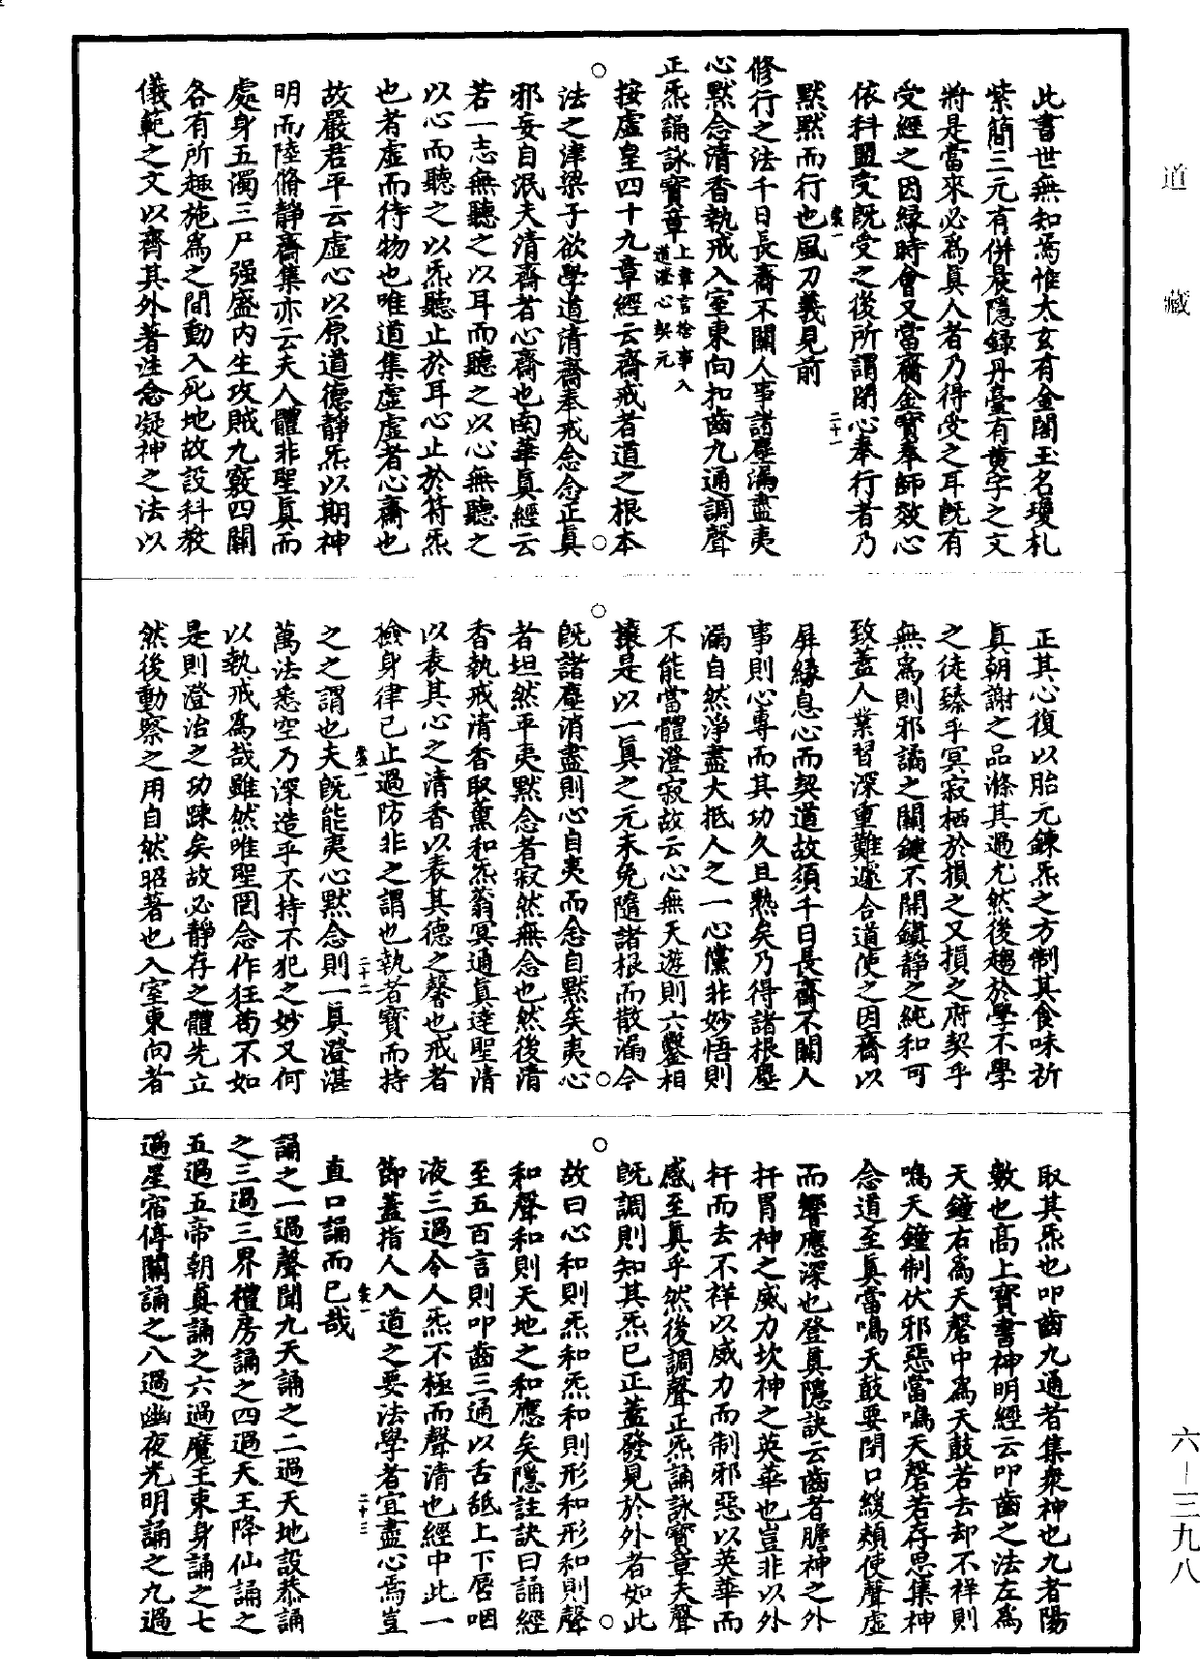 道藏
六—三九八
此書世無知焉惟太玄有金闕玉名瓊札
紫簡三元有併晨隱錄丹臺有黄字之文
將是當來必爲眞人者乃得受之耳既有
受經之因緣時會又當齎金寶奉師效心
依科盟受既受之後所謂閉心奉行者乃
默默而行也風刀義見前
二十一
修行之法千日長齋不關人事諸塵漏盡夷
心默念清香執戒入室東向扣齒九通調聲
正炁誦詠寳章上章言捨事入道澄心契元
按虛皇四十九章經云齋戒者道之根本
法之津梁子欲學道清齋奉戒念念正眞
邪妄自泯夫清齋者心齋也南華眞經云
若一志無聽之以耳而聽之以心無聽之
以心而聽之以炁聽止於耳心止於符炁
也者虛而待物也唯道集虛虛者心齋也
故嚴君平云虛心以原道德靜炁以期神
明而陸脩靜齋集亦云夫人體非聖眞而
處身五濁三尸强盛内生攻賊九竅四關
各有所趣施爲之間動入死地故設科教
儀範之文以齊其外著注念凝神之法以
正其心復以胎元鍊炁之方制其食味祈
眞朝謝之品滌其過尤然後趨於學不學
之徒臻乎冥寂栖於損之又損之府契乎
無爲則邪譎之關鍵不開鎮靜之純和可
致蓋人業習深重難遽合道使之因齋以
屏緣息心而契道故須千日長齋不關人
事則心專而其功久且熟矣乃得諸根塵
漏自然淨盡大抵人之一心儻非妙悟則
不能當體澄寂故云心無天遊則六鑿相
攘是以一眞之元未免隨諸根而散漏今
既諸塵消盡則心自夷而念自默矣夷心
者坦然平夷默念者寂然無念也然後清
香執戒清香取薰和炁蓊冥通眞達聖清
以表其心之清香以表其德之馨也戒者
撿身律己止過防非之謂也執者寶而持
二十二
之之謂也夫既能夷心默念則一眞澄湛
萬法悉空乃深造乎不持不犯之妙又何
以執戒爲哉雖然唯聖罔念作狂苟不如
是則澄治之功踈矣故必靜存之體先立
然後動察之用自然昭著也入室東向者
取其炁也叩齒九通者集衆神也九者陽
數也髙上寳書神明經云叩齒之法左爲
天鐘右爲天磬中爲天鼓若去却不祥則
鳴天鐘制伏邪惡當鳴天磬若存思集神
念道至眞當鳴天鼓要閉口緩頰使聲虛
而響應深也登眞隱訣云齒者膽神之外
扞胃神之威力坎神之英華也豈非以外
扞而去不祥以威力而制邪惡以英華而
感至眞乎然後調聲正炁誦詠寳章夫聲
既調則知其炁已正蓋發見於外者如此
故曰心和則炁和炁和則形和形和則聲
和聲和則天地之和應矣隱註訣曰誦經
至五百言則叩齒三通以舌舐上下唇咽
液三過令人炁不極而聲清也經中此一
節蓋指人入道之要法學者宜盡心焉豈
二十三
直口誦而已哉
誦之一過聲聞九天誦之二過天地設恭誦
之三過三界禮房誦之四過天王降仙誦之
五過五帝朝眞誦之六過魔王束身誦之七
過星宿停關誦之八過幽夜光明誦之九過